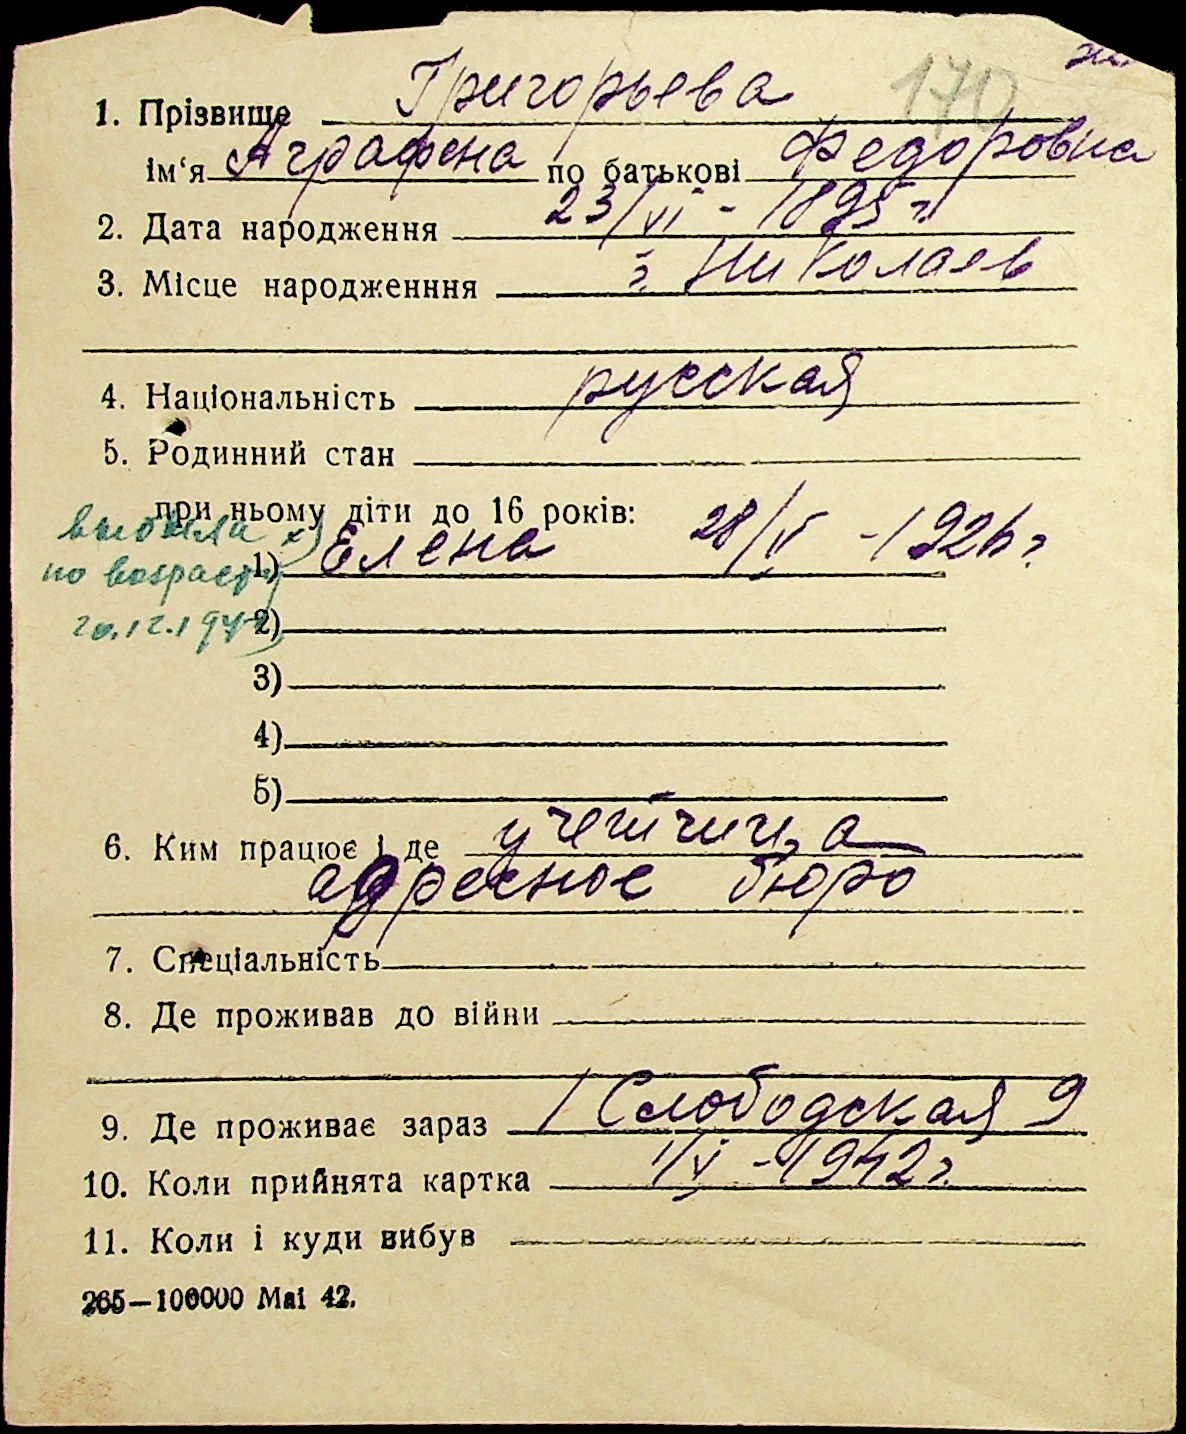 170
1. Прізвище Григорьева
ім‘я Аграфена по батькові Федоровна
2. Дата народження 23/VI - 1895 г.
3. Місце народженння г. Николаев
4. Національність русская
5. Родинний стан
при ньому діти до 16 років:
1) Елена 28/V - 1926 г
выбыла х)
по возрасту
2)
3)
4)
5)
6. Ким працює і де учетчица
адресное бюро
7. Спеціальність
8. Де проживав до війни
9. Де проживає зараз 1 Слободская 9
10. Коли прийнята картка 1/V - 1942 г.
11. Коли і куди вибув
265—100000 Маі 42.